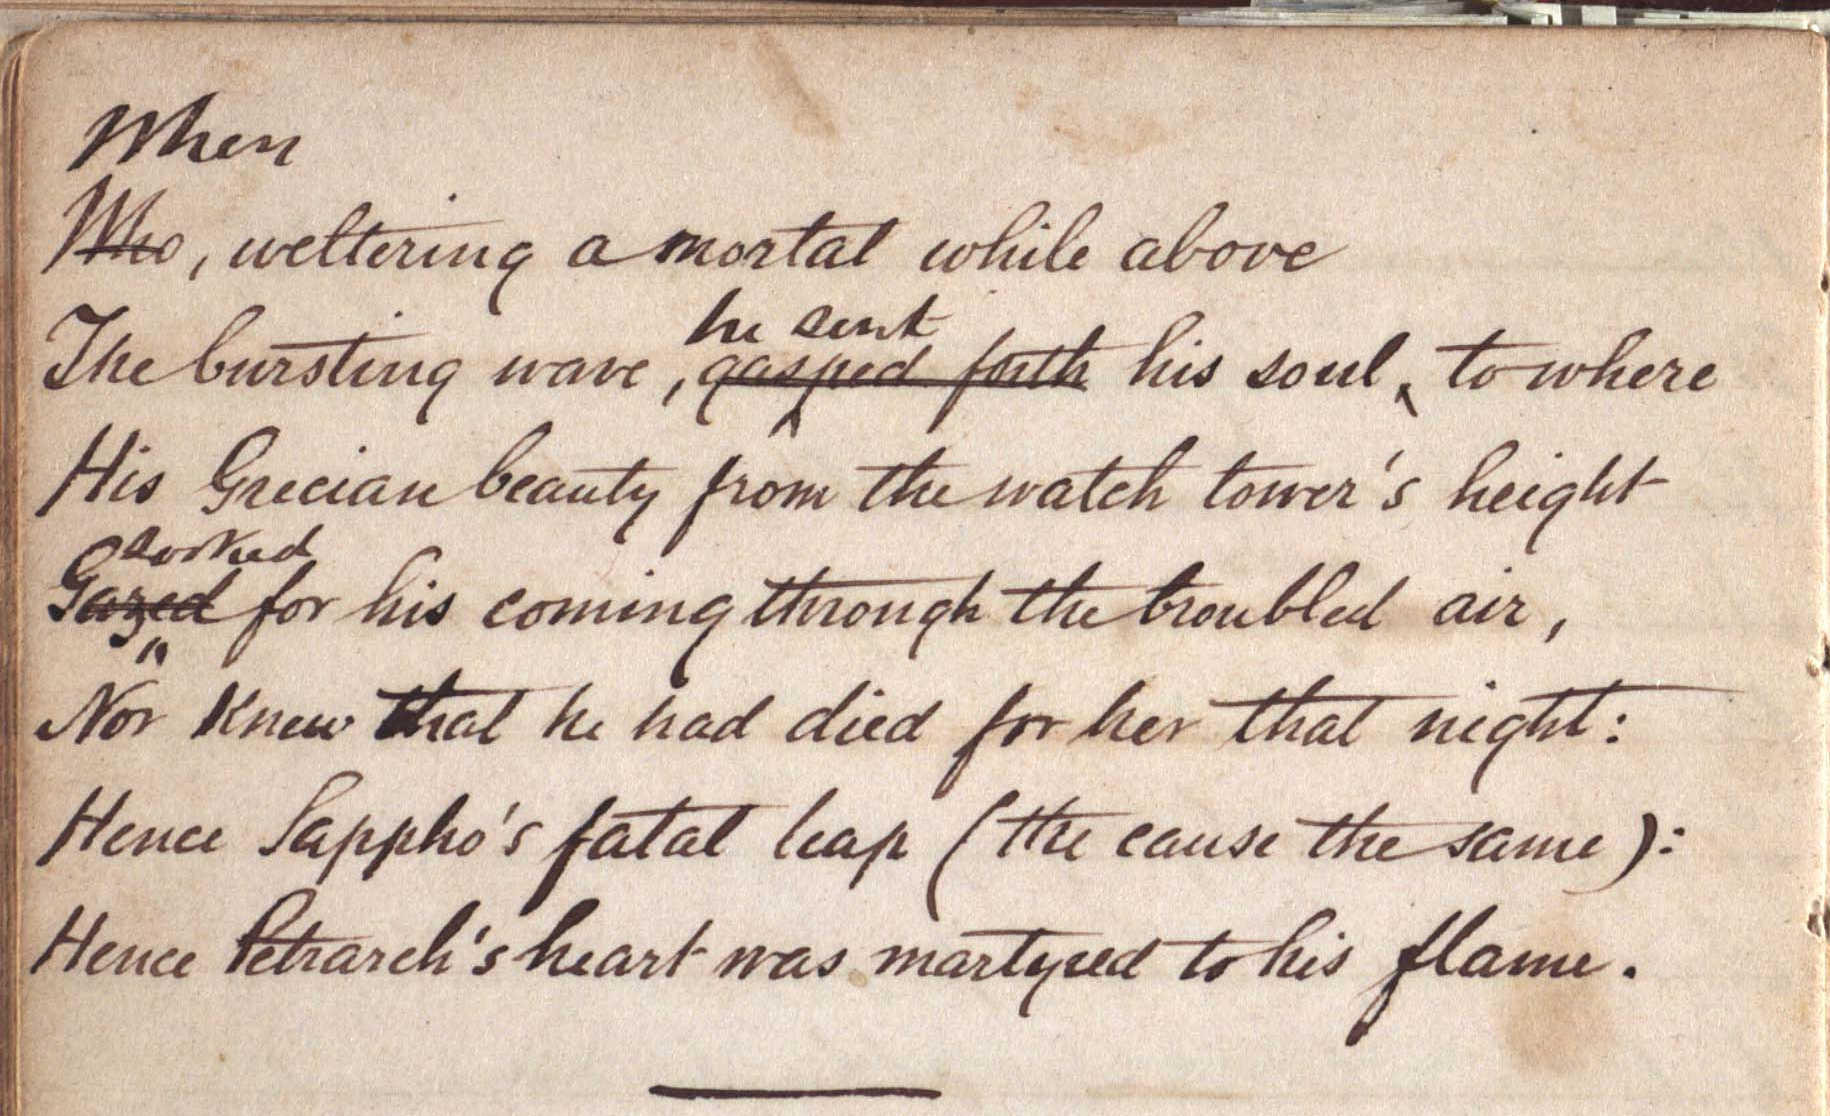 When
Who, weltering a mortal while above
he sent
The bursting wave, gasped forth his soul, to where
His Grecian beauty from the watch tower's height
Looked
Gazed for his coming through the troubled air,
Nor Knew that he had died for her that night:
Hence Sappho's fatal leap (the cause the same):
Hence Petrarch's heart was martyred to his flame.